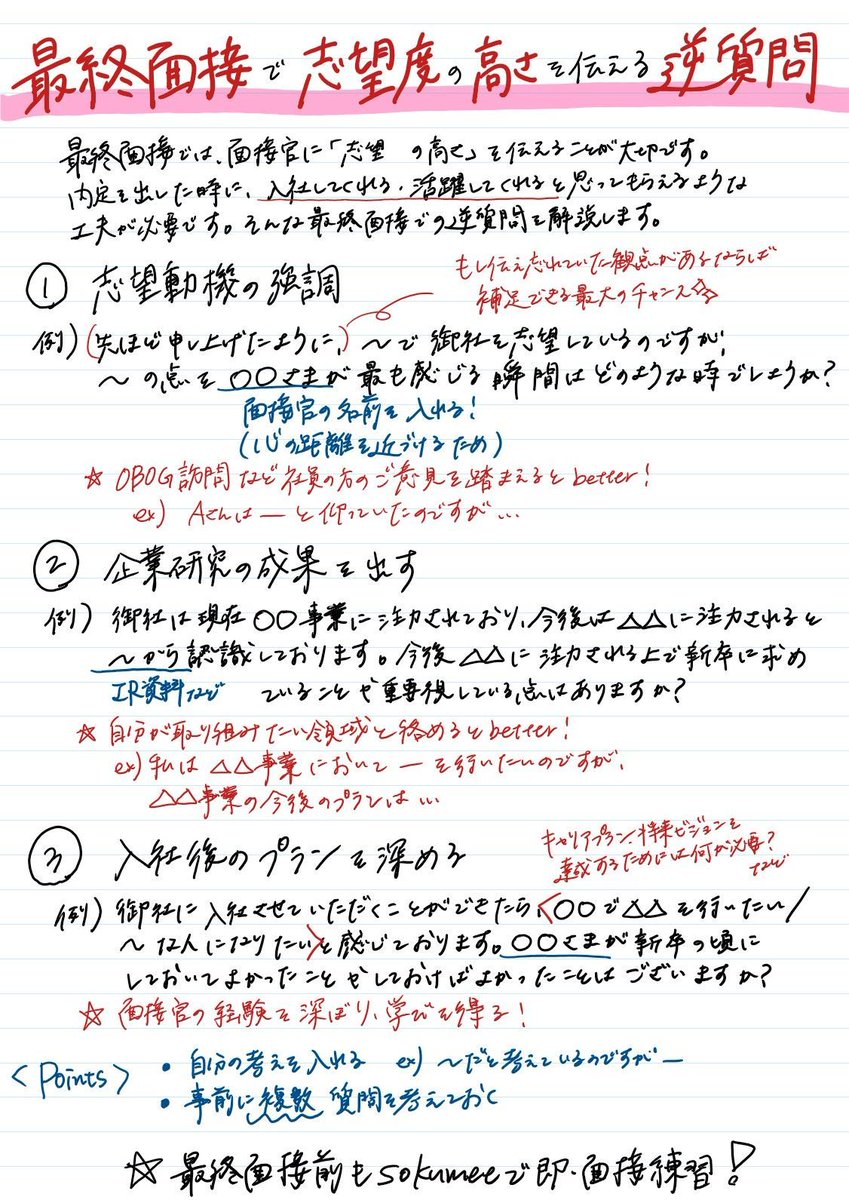 最終面接で志望度の高さを伝える逆質問
最終面接では、面接官に「志望 の高さ」を伝えることが大切です。
内定を出した時に、入社してくれる・活躍してくれると思ってもらえるような
工夫が必要です。そんな最終面接での逆質問を解説します。
① 志望動機の強調
もし伝え忘れていた観点があるならば
補足できる最大のチャンス☆
例)(先ほど申し上げたように、)〜で御社を志望しているのですが、
〜の点を〇〇さまが最も感じる瞬間はどのような時でしょうか?
面接官の名前を入れる!
(心の距離を近づけるため)
☆ OBOG訪問など社員の方のご意見を踏まえるとbetter!
ex) Aさんは―と仰っていたのですが…
② 企業研究の成果を出す
例) 御社は現在〇〇事業に注力されており、今後は△△に注力されると
〜から認識しております。今後△△に注力される上で新卒に求め
IR資料など
ていることや重要視している点はありますか?
☆ 自分が取り組みたい領域と絡めるとbetter!
ex) 私は△△事業において―を行いたいのですが、
△△事業の今後のプランは…
③ 入社後のプランを深める
キャリアプラン・将来ビジョンを
達成するためには何が必要?
など
例) 御社に入社させていただくことができたら、<〇〇で△△を行いたい/
〜な人になりたい>と感じております。〇〇さまが新卒の頃に
しておいてよかったことやしておけばよかったことはございますか?
☆ 面接官の経験を深ぼり、学びを得る!
<Points>
• 自分の考えを入れる ex) 〜だと考えているのですが―
• 事前に複数質問を考えておく
☆ 最終面接前もsokumeeで即・面接練習!